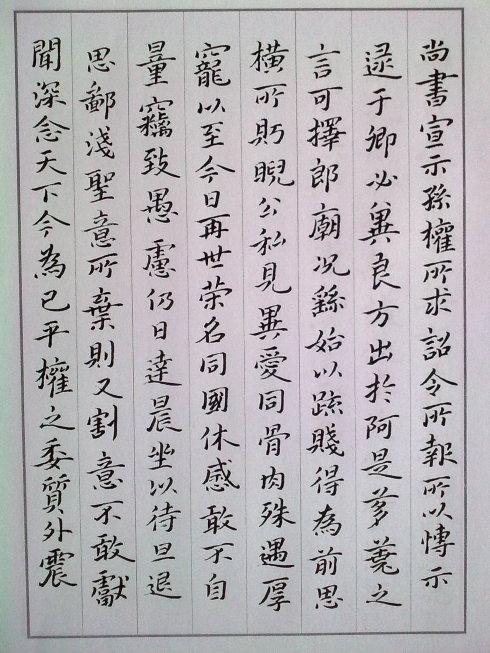 尚書宣示孫權所求詔令所報所以慱示
逮于卿必冀良方出於阿是芻蕘之
言可擇郎廟况繇始以疏賤得為前思
橫所盻睨公私見異愛同骨肉殊遇厚
寵以至今日再世荣名同國休感敢不自
量竊致愚慮仍日達晨坐以待旦退
思鄙淺聖意所棄則又割意不敢獻
聞深念天下今為已平權之委質外震